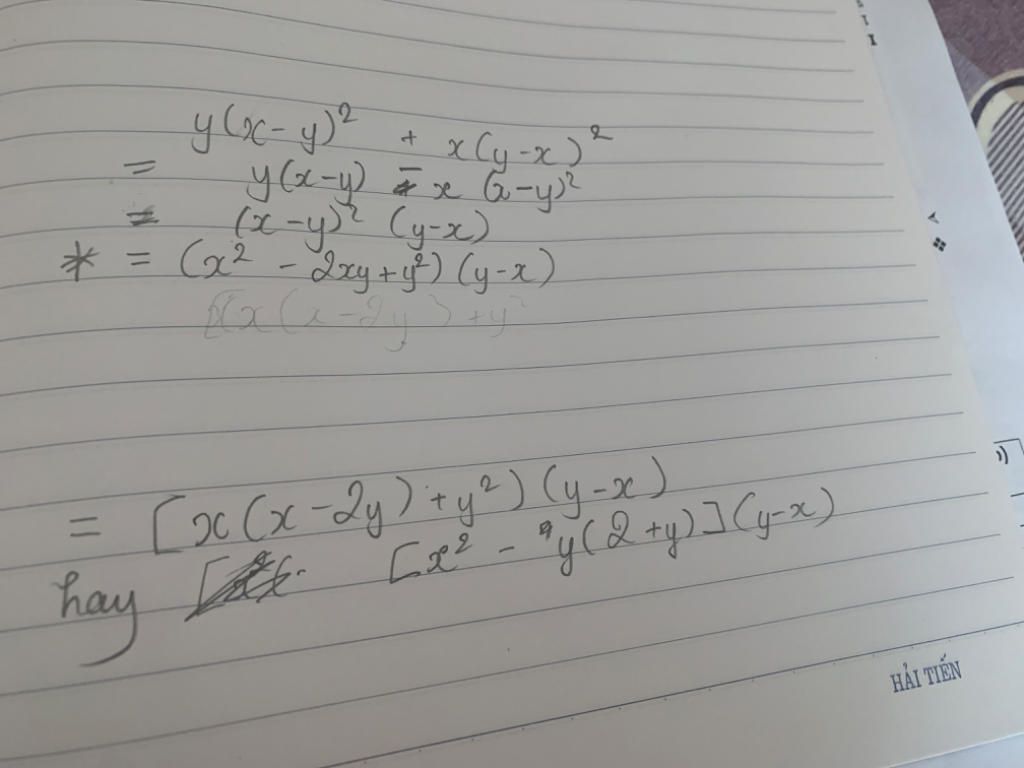 y(x-y)² + x(y-x)²
= y(x-y) - x (x-y)²
= (x-y)² (y-x)
* = (x² - 2xy+y²)(y-x)
x(x-2y)+y²
= [x(x-2y)+y²)(y-x)
hay [x² - y(2+y)](y-x)
HẢI TIẾN